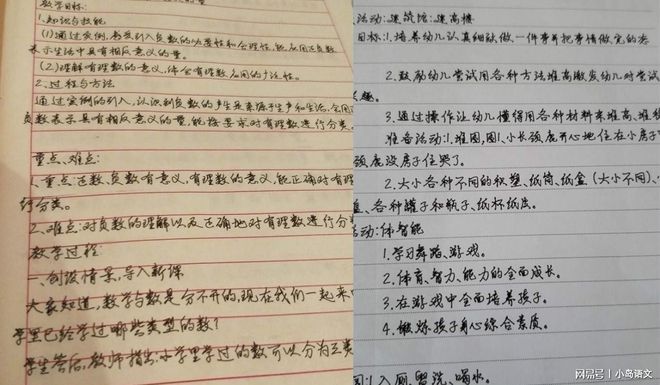 教学目标:
1.知识与技能
(1)通过实例,感受引入负数的必要性和合理性,能应用正负数
表示生活中具有相反意义的量。
(2)理解有理数的意义,体会有理数应用的广泛性。
2.过程与方法
通过实例的引入,认识到负数的产生是来源于生产和生活,会用正
负数表示具有相反意义的量,能按要求对有理数进行分类。
重点、难点:
1.重点:正数、负数有意义,有理数的意义,能正确对有理
行分类。
2.难点:对负数的理解以及正确地对有理数进行分类
教学过程:
一、创设情景,导入新课
大家知道,数学与数是分不开的,现在我们一起来
学里已经学过哪些类型的数?
学生答后,教师指出:小学里学过的数可以分为三类
活动:建筑馆:建高楼
目标:1.培养幼儿认真细致做一件事并把事情做完的态
2.鼓励幼儿尝试用各种方法堆高激发幼儿对尝试
趣。
3.通过操作让幼儿懂得用各种材料来堆高、堆
准备活动:1.堆图,图1.小长颈鹿开心地住在小房子
颈鹿没房子住哭了。
2.大小各种不同的积塑、纸筒、纸盒(大小不同)、
、各种罐子和瓶子、纸杯纸盘。
活动:体智能
1.学习舞蹈、游戏。
2.体育、智力、能力的全面成长。
3.在游戏中全面培养孩子。
4.锻炼孩子身心综合素质。
入厕、盥洗、喝水。
网易号 | 小鸟语文